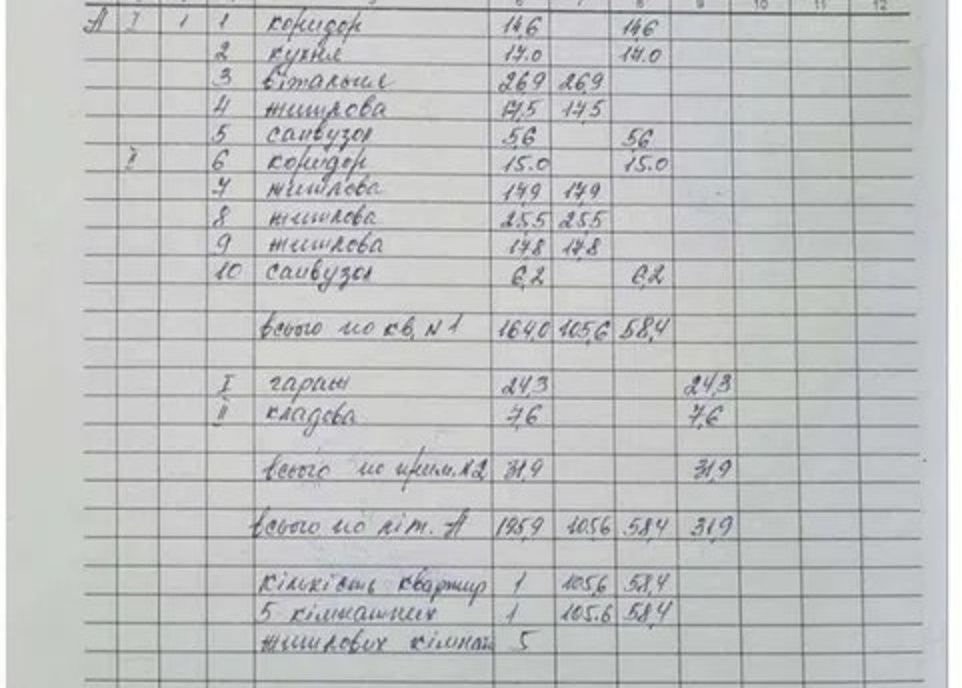 6 7 8 9 10 11 12
А I 1 1 коридор 14,6 14,6
2 кухня 17.0 17.0
3 вітальня 26,9 26,9
4 житлова 17,5 17,5
5 санвузол 5,6 5,6
ІІ 6 коридор 15.0 15.0
7 житлова 17,9 17,9
8 житлова 25,5 25,5
9 житлова 17,8 17,8
10 санвузол 6,2 6,2
всього по кв. №1 164,0 105,6 58,4
I гараж 24,3 24,3
II кладова 7,6 7,6
всього по прим. №2 31,9 31,9
всього по літ. А 195,9 105,6 58,4 31,9
кількість квартир 1 105,6 58,4
5-кімнатних 1 105.6 58,4
житлових кімнат 5